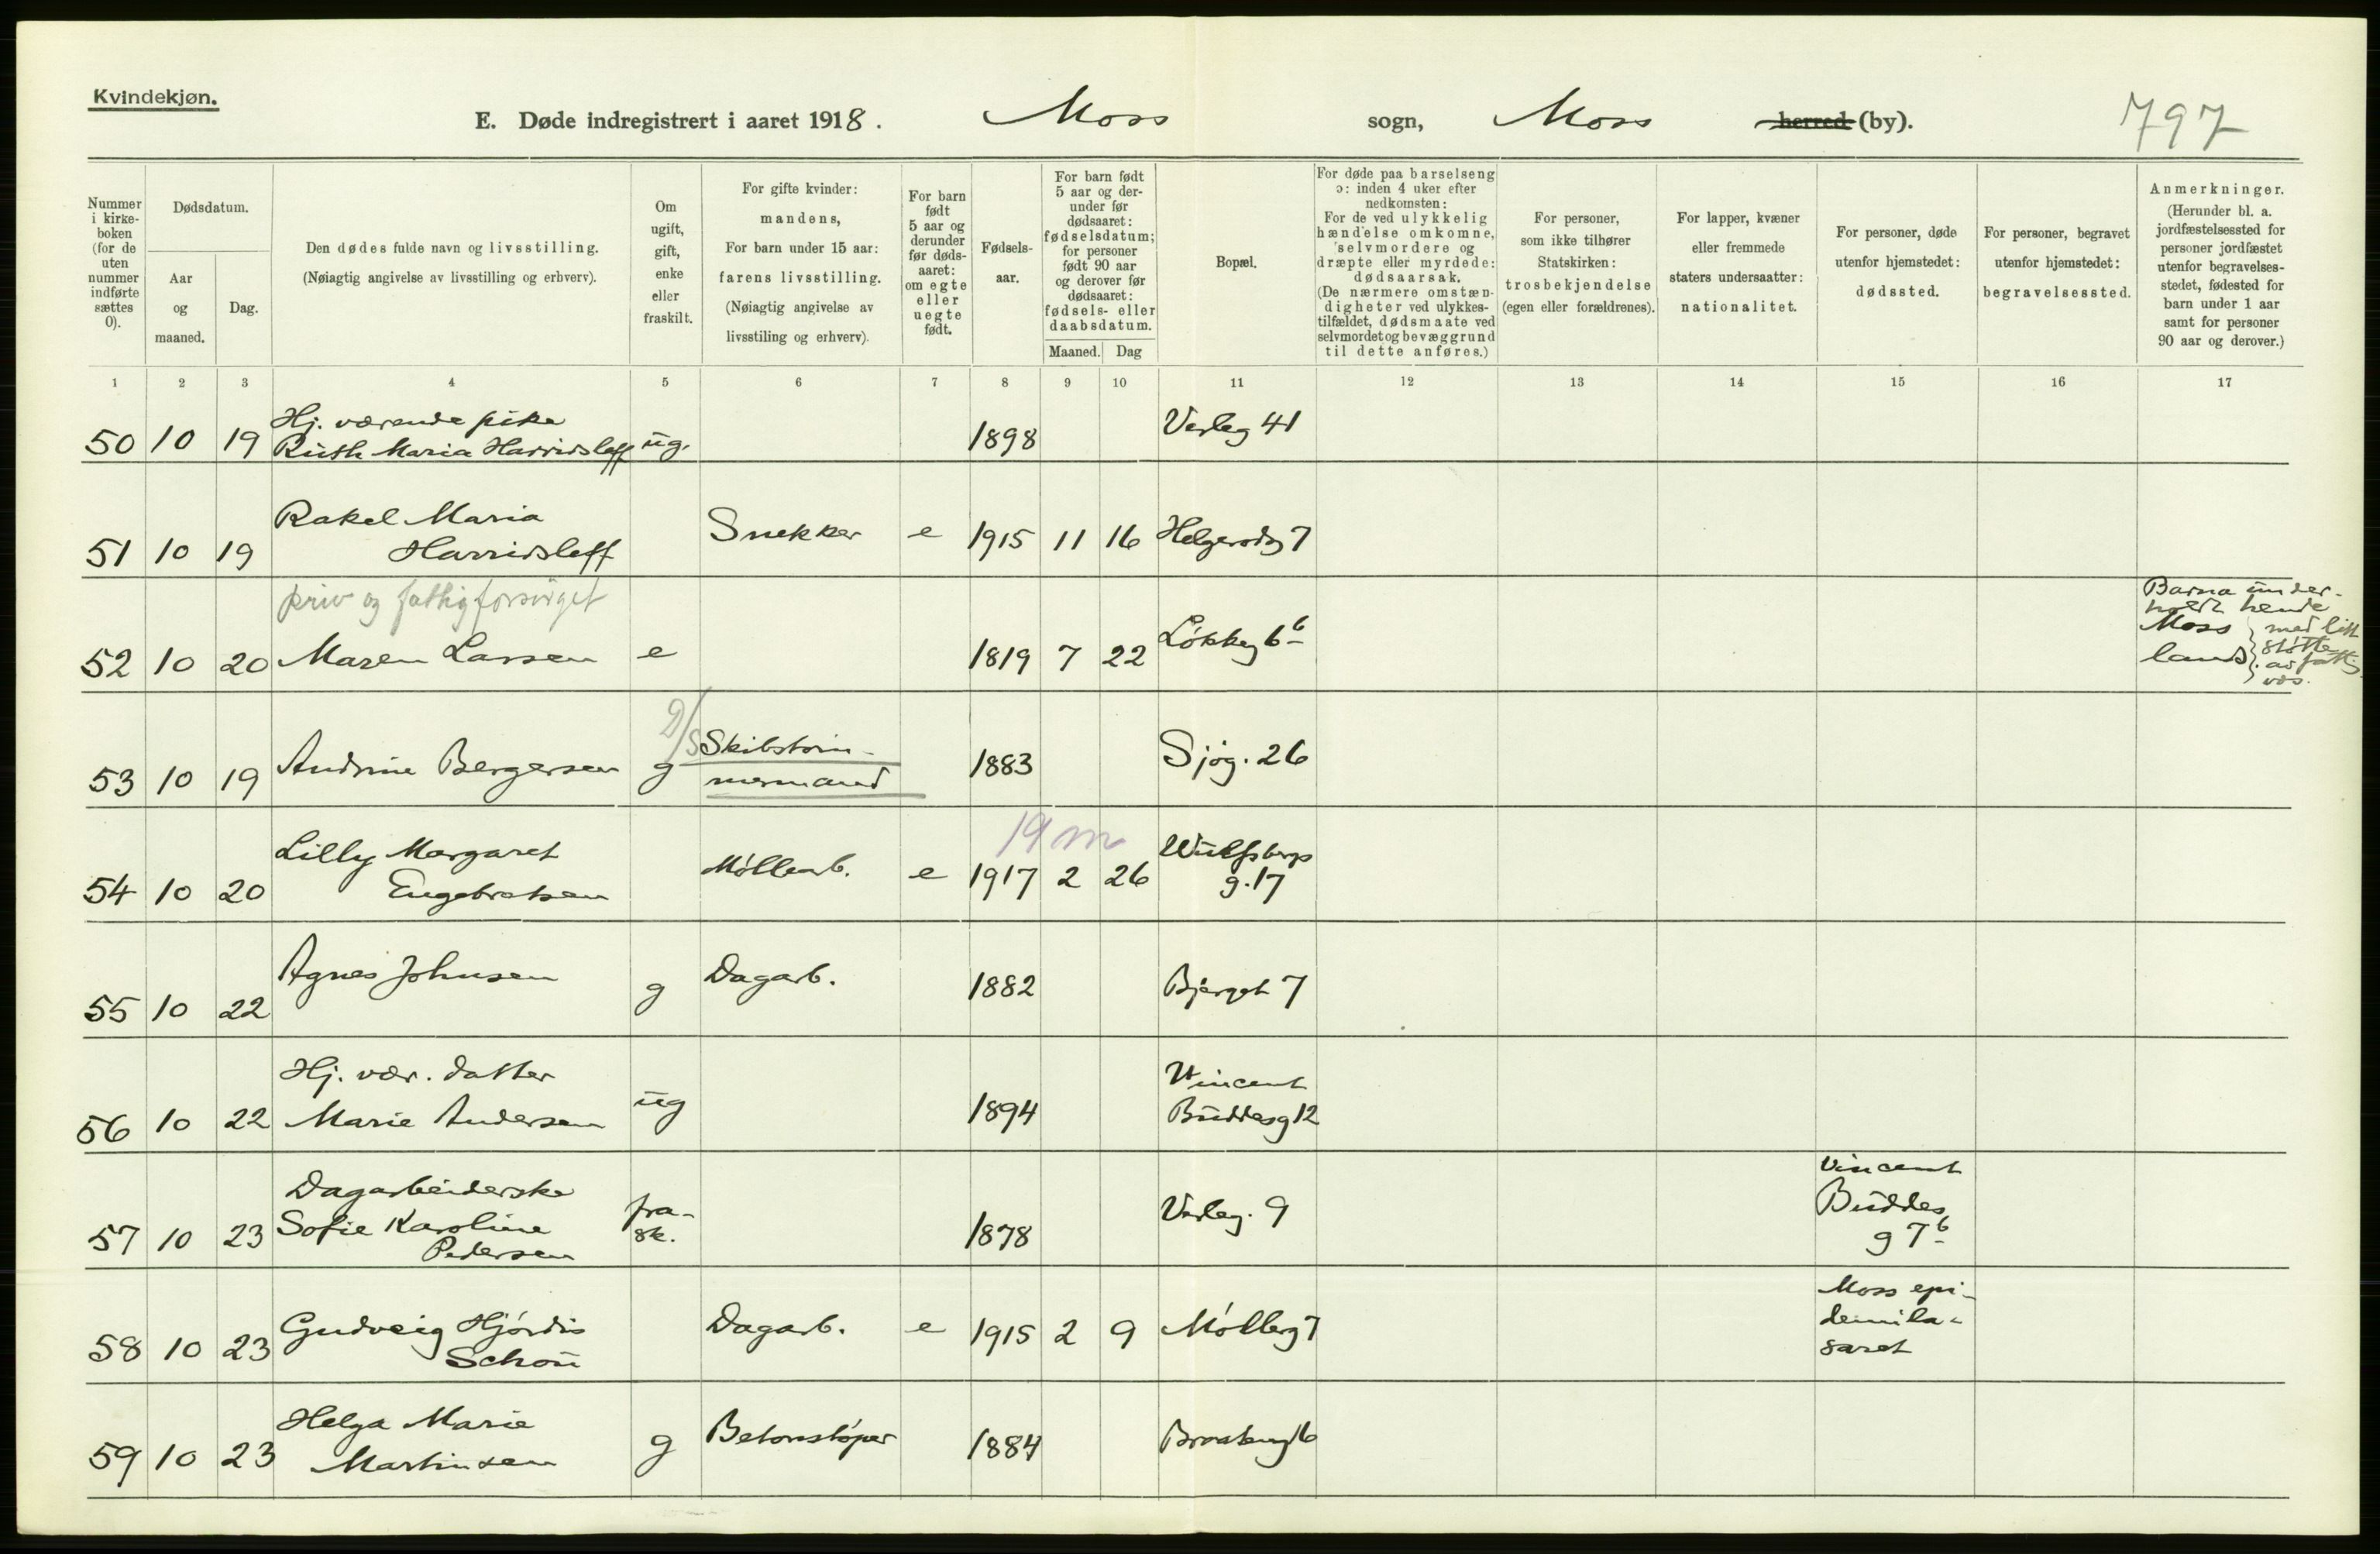 Kvindekjøn.
E. Døde indregistrert i aaret 1918. Moss sogn, Moss herred (by). 797
Nummer i kirke-boken (for de uten nummer indførte sættes 0).
Dødsdatum.
Aar og maaned.
Dag.
Den dødes fulde navn og livsstilling.
(Nøiagtig angivelse av livsstilling og erhverv).
Om ugift, gift, enke eller fraskilt.
For gifte kvinder: mandens,
For barn under 15 aar: farens livsstilling.
(Nøiagtig angivelse av livsstiling og erhverv).
For barn født 5 aar og derunder før døds-aaret: om egte eller uegte født.
Fødsels-aar.
For barn født 5 aar og der-under før dødsaaret: fødselsdatum; for personer født 90 aar og derover før dødsaaret: fødsels- eller daabsdatum.
Maaned. Dag
Bopæl.
For døde paa barselseng ɔ: inden 4 uker efter nedkomsten:
For de ved ulykkelig hændelse omkomne, selvmordere og dræpte eller myrdede: dødsaarsak.
(De nærmere omstæn-digheter ved ulykkes-tilfældet, dødsmaate ved selvmordet og bevæggrund til dette anføres.)
For personer, som ikke tilhører Statskirken: trosbekjendelse (egen eller forældrenes).
For lapper, kvæner eller fremmede staters undersaatter: nationalitet.
For personer, døde utenfor hjemstedet: dødssted.
For personer, begravet utenfor hjemstedet: begravelsessted.
Anmerkninger.
(Herunder bl. a. jordfæstelsessted for personer jordfæstet utenfor begravelses-stedet, fødested for barn under 1 aar samt for personer 90 aar og derover.)
1 2 3 4 5 6 7 8 9 10 11 12 13 14 15 16 17
Hj. værende pike
50 10 19 Ruth Maria Harridsleff ug. 1898 Verleg 41
Rakel Maria
51 10 19 Harridsleff Snekker e 1915 11 16 Helgerødg 7
priv og fattigforsørget
52 10 20 Maren Larsen e 1819 7 22 Løkkeg 6b
Barna under-
holdt hende
Moss med litt
land. støtte
av fattig
væs.
D/S Skibstøm-
53 10 19 Andrine Bergersen g mermand 1883 Sjøg. 26
19 m
Lilly Margaret
54 10 20 Engebretsen Møllearb. e 1917 2 26 Wulfsbergs
g. 17
55 10 22 Agnes Johnsen g Dagarb. 1882 Bjerget 7
Hj. vær. datter
56 10 22 Marie Andersen ug 1894 Vincent
Buddesg 12
Dagarbeiderske
57 10 23 Sofie Karoline
Pedersen fra-
sk. 1878 Verleg. 9 Vincent
Buddes
g 7b
58 10 23 Gudveig Hjørdis
Schou Dagarb. e 1915 2 9 Mølleg 7 Moss epi-
demila-
saret
Helga Marie
59 10 23 Martinsen g Betonstøper 1884